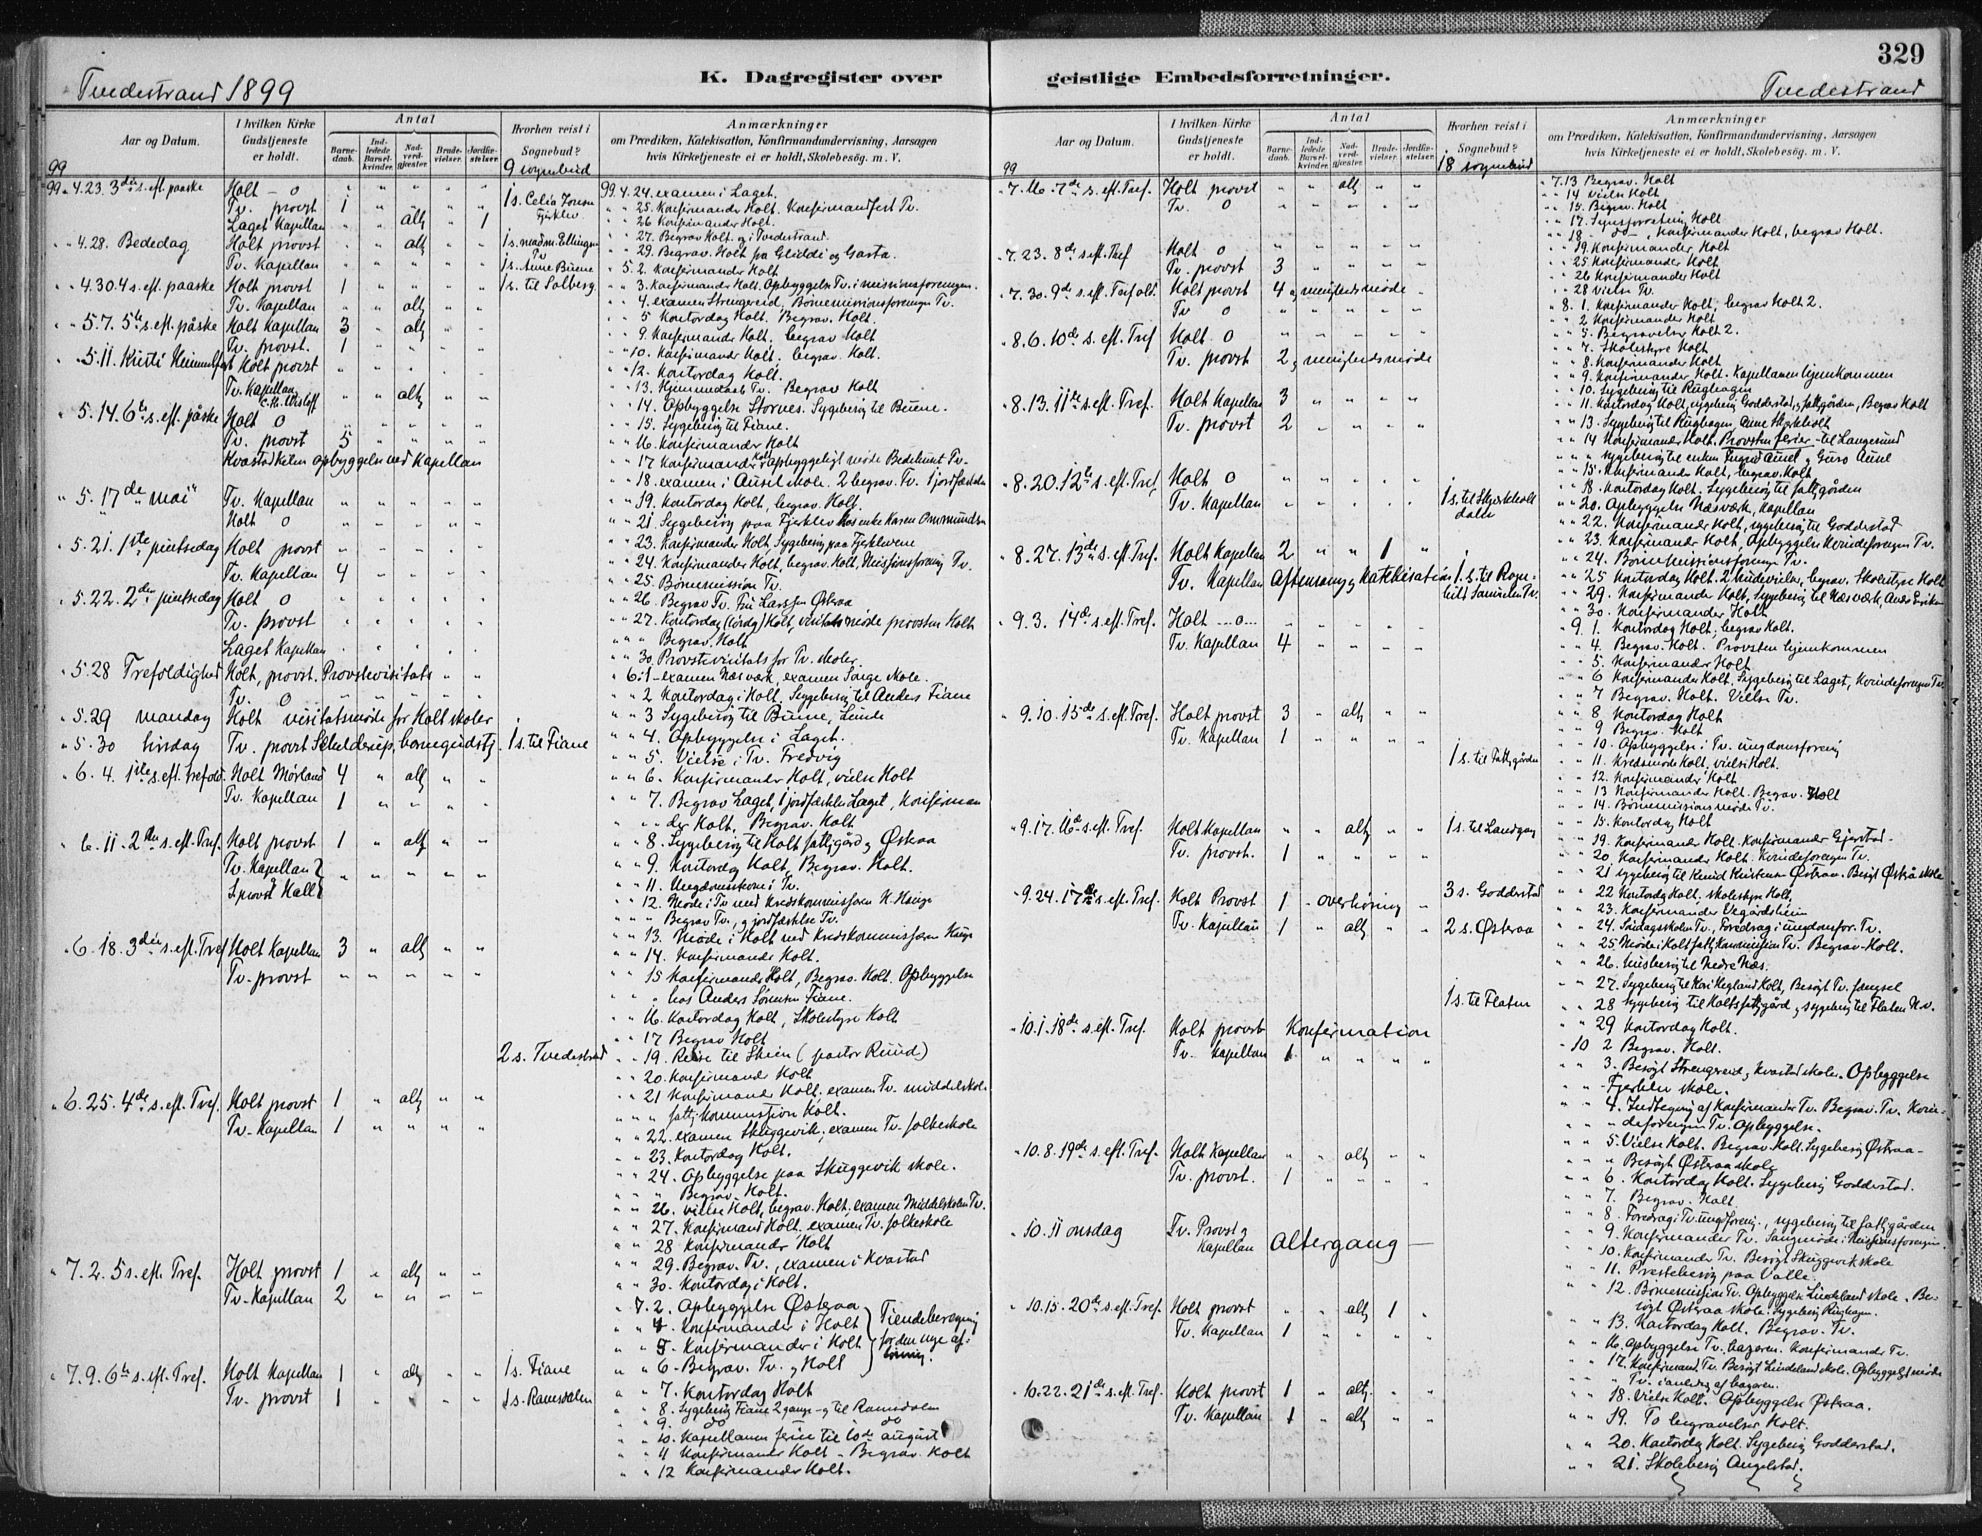 329
K. Dagregister over geistlige Embedsforretninger.
Tvedestrand 1899
Tvedestrand
Aar og Datum.
I hvilken Kirke Gudstjeneste er holdt.
Antal
Barnedaab.
Indledede Barselkvinder.
Nadverdgjester.
Brudevielser.
Jordfæstelser.
Hvorhen reist i Sognebud?
9 sognebud
Anmærkninger
om Prædiken, Katekisation, Konfirmandundervisning, Aarsagen
hvis Kirketjeneste ei er holdt, Skolebesøg. m. V.
99
99 " 4.23. 3die s. eft. paaske Holt - 0
Tv. provst 1
Laget Kapellan " " altg " 1
" " 4.28. Bededag Holt provst " " altg
Tv. Kapellan
1 s. Anne Buene
" " 4.30. 4 s. eft. paaske Holt provst 1 1 s. til Solberg
Tv. Kapellan " " altg
" " 5.7. 5te s. eft. påske Holt Kapellan 3 " altg
Tv. provst. 1
" 5.11 Kristi Himmelfart Holt provst
Tv. Kapellan altg
" 5.14. 6te s. eft. påske Holt 0
Tv. provst 5
Kvastad Keten opbyggelse ved Kapellan
" 5.17de mai Tv. Kapellan
Holt 0
" 5.21. 1ste pintsedag Holt provst
Tv. Kapellan 4
" 5.22. 2den pintsedag Holt 0
Tv. provst
Laget Kapellan
" 5.28 Trefoldighed Holt, provst. Provstevisitats
Tv. 0
" 5.29 mandag Holt visitatsmøde for Holt skoler
" 5.30 tirsdag Tv. provst Schelderup, barnegudstj. 1 s. til Fiane
" 6.4. 1ste s. eft. Trefold. Holt Mørland 4 " altg
Tv. Kapellan 1
" 6.11. 2den s. eft. Tref. Holt provst 1 " altg
Tv. Kapellan
" 6.18. 3die s. eft. Tref Holt Kapellan 3 " altg
Tv. provst
2 s. Tvedestrand
" 6.25. 4de s. eft. Tref. Holt provst 1 " altg
Tv. Kapellan 1
" 7.2. 5 s. eft. Tref. Holt provst 1 " altg
Tv. Kapellan 2
" 7.9. 6te s. eft. Tref. Holt Kapellan 1 " altg 1 s. Fiane
Tv. provst 1 1 s. Ramsdalen
99 4.24. examen i Laget.
" " 25. Konfirmander Holt. Konfirmandfest Tv.
" " 26 Konfirmander Holt.
" " 27. Begrav Holt. og i Tvedestrand.
" " 29. Begrav. Holt fra Gliddi og Garta.
" 5.2. Konfirmander Holt
" " 3. Konfirmander Holt. Opbyggelse Tv. i missionsforeningen.
" " 4. examen Strengereid, Børnemissionsforeningen Tv.
" " 5 Kontordag Holt. Begrav. Holt.
" " 9. Konfirmander Holt. begrav Holt
" " 10. Konfirmander Holt. begrav Holt.
" " 12. Kontordag Holt.
" " 13. Hjemmedaab Tv. Begrav Holt
" " 14. Opbyggelse Storves. Sygebesøg til Buene.
" " 15. Sygebesøg til Fiane.
" " 16. Konfirmander Holt
" " 17 Konfirmander Holt, Opbyggeligt møde Bedehuset Tv.
" " 18. examen i Ausel skole. 2 begrav. Tv. 1 jordfæstelse
" " 19. Kontordag Holt, begrav. Holt.
" " 21. Sygebesøg paa Fjerklev hos enke Karen Ommundsen
" " 23. Konfirmander Holt Sygebesøg paa Fjerklevene
" " 24. Konfirmander Holt, begrav. Holt, Missionsforening Tv.
" " 25. Børnemission Tv.
" " 26. Begrav Tv. Fru Larssen Østeraa
" " 27. Kontordag (lørdg) Holt, visitatsmøde provsten Holt
" " " Begrav. Holt
" " 30. Provstevisitats for Tv. skoler.
" 6.1 - examen Næsværk, examen Songe skole.
" " 2 Kontordag i Holt, Sygebesøg til Anders Fiane
" " 3 Sygebesøg til Buene, Lunde
" " 4. Opbyggelse i Laget.
" " 5. Vielse i Tv. Fredvig
" " 6. Konfirmander Holt, vielse Holt
" " 7. Begrav Laget, 1 jordfæstelse Laget, Konfirman
" " der Holt. Begrav. Holt
" " 8. Sygebesøg til Holt fattiggård og Østeraa
" " 9. Kontordag Holt, Begrav. Holt.
" " 11. Ungdomskom i Tv.
" " 12. Møde i Tv med Kredskommissæren H. Hauge
" " " Begrav Tv., og jordfæstelse Tv.
" " 13. Møde i Holt ved Kredskommissæren Hauge
" " 14. Konfirmander Holt.
" " 15 Konfirmander Holt, Begrav. Holt. Opbyggelse
" " " hos Anders Sørensen Fiane.
" " 16. Kontordag Holt, Skolestyre Holt
" " 17 Begrav Holt
" " 19. Reise til Skien (pastor Ruud)
" " 20. Konfirmander Holt
" " 21 Konfirmander Holt; examen Tv. middelskole
" " " fattigkommission Holt.
" " 22. examen Skuggevik; examen Tv. folkeskole
" " 23. Kontordag Holt.
" " 24. Opbyggelse paa Skuggevik skole.
" " " Begrav. Holt.
" " 26. vielse Holt, begrav. Holt, examen Middelskolen Tv.
" " 27. Konfirmand Holt. examen Tv. folkeskole
" " 28 Konfirmander Holt
" " 29. Begrav. Tv., examen i Kvastad
" " 30. Kontordag i Holt.
" 7.2. Opbyggelse Østeraa
" " 4. Konfirmander i Holt
" " 5. Konfirmander i Holt
" " 6. Begrav. Tv. og Holt
Tiendeberegning for den nye af-
løsning.
" " 7. Kontordag Holt
" " 8. Sygebesøg Fiane 2 gange - og til Ramsdalen
" " 9. do do
" " 10. Kapellanen ferie til 10de august
" " 11 Konfirmander Holt - Begrav Holt
" " 12 Konfirmander Holt.
Aar og Datum.
I hvilken Kirke Gudstjeneste er holdt.
Antal
Barnedaab.
Indledede Barselkvinder.
Nadverdgjester.
Brudevielser.
Jordfæstelser.
Hvorhen reist i Sognebud?
18 sognebud
Anmærkninger
om Prædiken, Katekisation, Konfirmandundervisning, Aarsagen
hvis Kirketjeneste ei er holdt, Skolebesøg. m. V.
99
" 7.16. 7de s. eft. Tref. Holt provst " " altg
Tv. 0
" 7.23. 8de s. eft. Tref Holt 0
Tv. provst 3
" 7.30. 9de s. eft. Trefold. Holt provst 4 og menighedsmøde
Tv 0
" 8.6. 10de s. eft. Tref Holt 0
Tv. provst 2 og menighedsmøde
" 8.13. 11te s. eft. Tref. Holt Kapellan 3
Tv. provst 2
" 8.20. 12te s. eft. Tref, Holt 0
Tv. Kapellan
" 8.27. 13de s. eft. Tref. Holt Kapellan 2 " " 1
Tv. Kapellan Aftensang og Katekisation
" 9.3. 14de s. eft. Tref. Holt --0--
Tv. Kapellan 4
" 9.10. 15de s. eft. Tref. Holt provst 3 " altg
Tv. Kapellan 1
1 s. til Fattiggården
" 9.17. 16de s. eft. Tref. Holt Kapellan " " altg 1 s. til Landgang
Tv. provst. 1
" 9.24. 17de s. eft. Tref. Holt Provst 1 - overhøring 3 s. Godderstad
Tv. Kapellan 1 " altg 2 s. Østeraa
1 s. til Flaten
" 10.1. 18de s. eft. Tref. Holt provst Konfirmation
Tv. Kapellan 1
" 10.8. 19de s. eft. Tref. Holt Kapellan " " altg
Tv. provst. 1
" 10.11 onsdag Tv. Provst og
Kapellan Altergang
" 10.15. 20de s. eft. Tref. Holt provst " " altg 1
Tv. Kapellan 1
" 10.22. 21de s. eft. Tref. Holt provst 1 " altg
Tv. Kapellan 1 " altg
" 7.13 Begrav. Holt
" " 14 vielse Holt
" " 15. Begrav. Holt
" " 17. Synsforretning Holt
" " 18. " do, Konfirmander Holt, begrav Holt.
" " 19. Konfirmander Holt
" " 25 Konfirmander Holt
" " 26 Konfirmander Holt
" " 28 vielse Tv
" 8.1. Konfirmander Holt, begrav Holt 2.
" " 2 Konfirmander Holt
" " 5. Begravelser Holt 2.
" " 7. Skolestyre Holt
" " 8. Konfirmander Holt
" " 9. Konfirmander Holt. Kapellanen hjemkommen
" " 10. Sygebesøg til Rughagen
" " 11. Kontordag Holt, sygebesøg Godderstad, og fattiggården, Begrav Holt
" " 13. Sygebesøg til Rughagen,
" " 14 Konfirmander Holt. Provsten ferier - til Langesund
" " " sygebesøg til enken Ingrid Ausel og Guro Ausel
" " 15. Konfirmander Holt, begrav. Holt
" " 18. Kontordag Holt. Sygebesøg til fattiggården
" " 20. Opbyggelse Næsværk, Kapellan
" " 22. Konfirmander Holt, sygebesøg til Godderstad
" " 23. Konfirmander Holt, Opbyggelse Kvindeforeningen Tv.
" " 24. Børnemissionsforening Tv.
" " 25 Kontordag Holt. begrav. Skolestyre Holt
" " 29. Konfirmander Holt, Sygebesøg til Næsværk,
" " 30. Konfirmander Holt
" 9.1. Kontordag Holt; begrav Holt.
" " 4. Begrav. Holt. Provsten hjemkommen
" " 5. Konfirmander Holt
" " 6 Konfirmander Holt. Sygebesøg til Laget, Kvindeforeningen Tv.
" " 7 Begrav. Holt. Vielse Tv.
" " 8 Kontordag Holt
" " 9 Begrav. Holt
" " 10. Opbyggelse i Tv. ungdomsforening
" " 11. Kredsmøde Holt, vielse Holt.
" " 12. Konfirmander Holt
" " 13 Konfirmander Holt. Begrav. Holt
" " 14. Børnemissionsmøde Tv.
" " 15. Kontordag Holt
" " 19. Konfirmander Holt. Konfirmander Gjerstad
" " 20. Konfirmander Holt. Kvindeforeningen Tv.
" " 21 Sygebesøg til Østeraa. Besøgt Østerå skole
" " 22 Kontordg Holt. skolestyre Holt,
" " 23. Konfirmander Vegårdsheien
" " 24. Søndagsskolen Tv., Foredrag i ungdomsfor. Tv.
" " 25 Møde i Holt fattigkommission Tv. Begrav. Holt.
" " 26. Husbesøg til Nedre Næs.
" " 27. Sygebesøg til Kari Hegland Holt, Besøgt Tv. fængsel
" " 28 Sygebesøg til Holts fattiggård og sygebesøg til Flaten
" " 29 Kontordag Holt.
" 10 2 Begrav. Holt.
" " 3. Besøgt Strengereid og Kvastad skoler. Opbyggelse
" " Fjerklev skole.
" " 4. Indtegning af Konfirmander Tv. Begrav. Tv. Kvin-
" " deforeningen Tv. Opbyggelse.
" " 5. Vielse Holt. Begrav. Holt. Sygebesøg Østeraa
" " " Besøgt Østeraa skole
" " 6. Kontordag Holt. Sygebesøg Godderstad.
" " 7. Begrav. Holt
" " 8. Foredrag i Tv. ungd. forening., sygebesøg til fattiggården
" " 9. Konfirmander Tv. Sangmøde i Missionsforeningen
" " 10. Konfirmander Tv. Besøgt Skuggevik skole
" " 11. Prestebesøg paa Valle.
" " 12. Børnemission Tv. Opbyggelse Lindeland skole. Be-
søgt Østeraa skole. Sygebesøg Rughagen.
" " 13. Kontordag Holt. Begrav. Tv.
" " 16. Opbyggelse Tv. bazaren. Konfirmander Tv.
" " 17. Konfirmand. Tv. Besøgt Lindeland skole. Opbyggeligt møde
" " " Tv. i anledng af bazaren.
" " 18. Vielse Holt. Opbyggelse Østeraa.
" " 19. To begravelser Holt.
" " 20. Kontordag Holt. Sygebesøg Godderstad.
" " 21. Skolebesøg Angelstad.